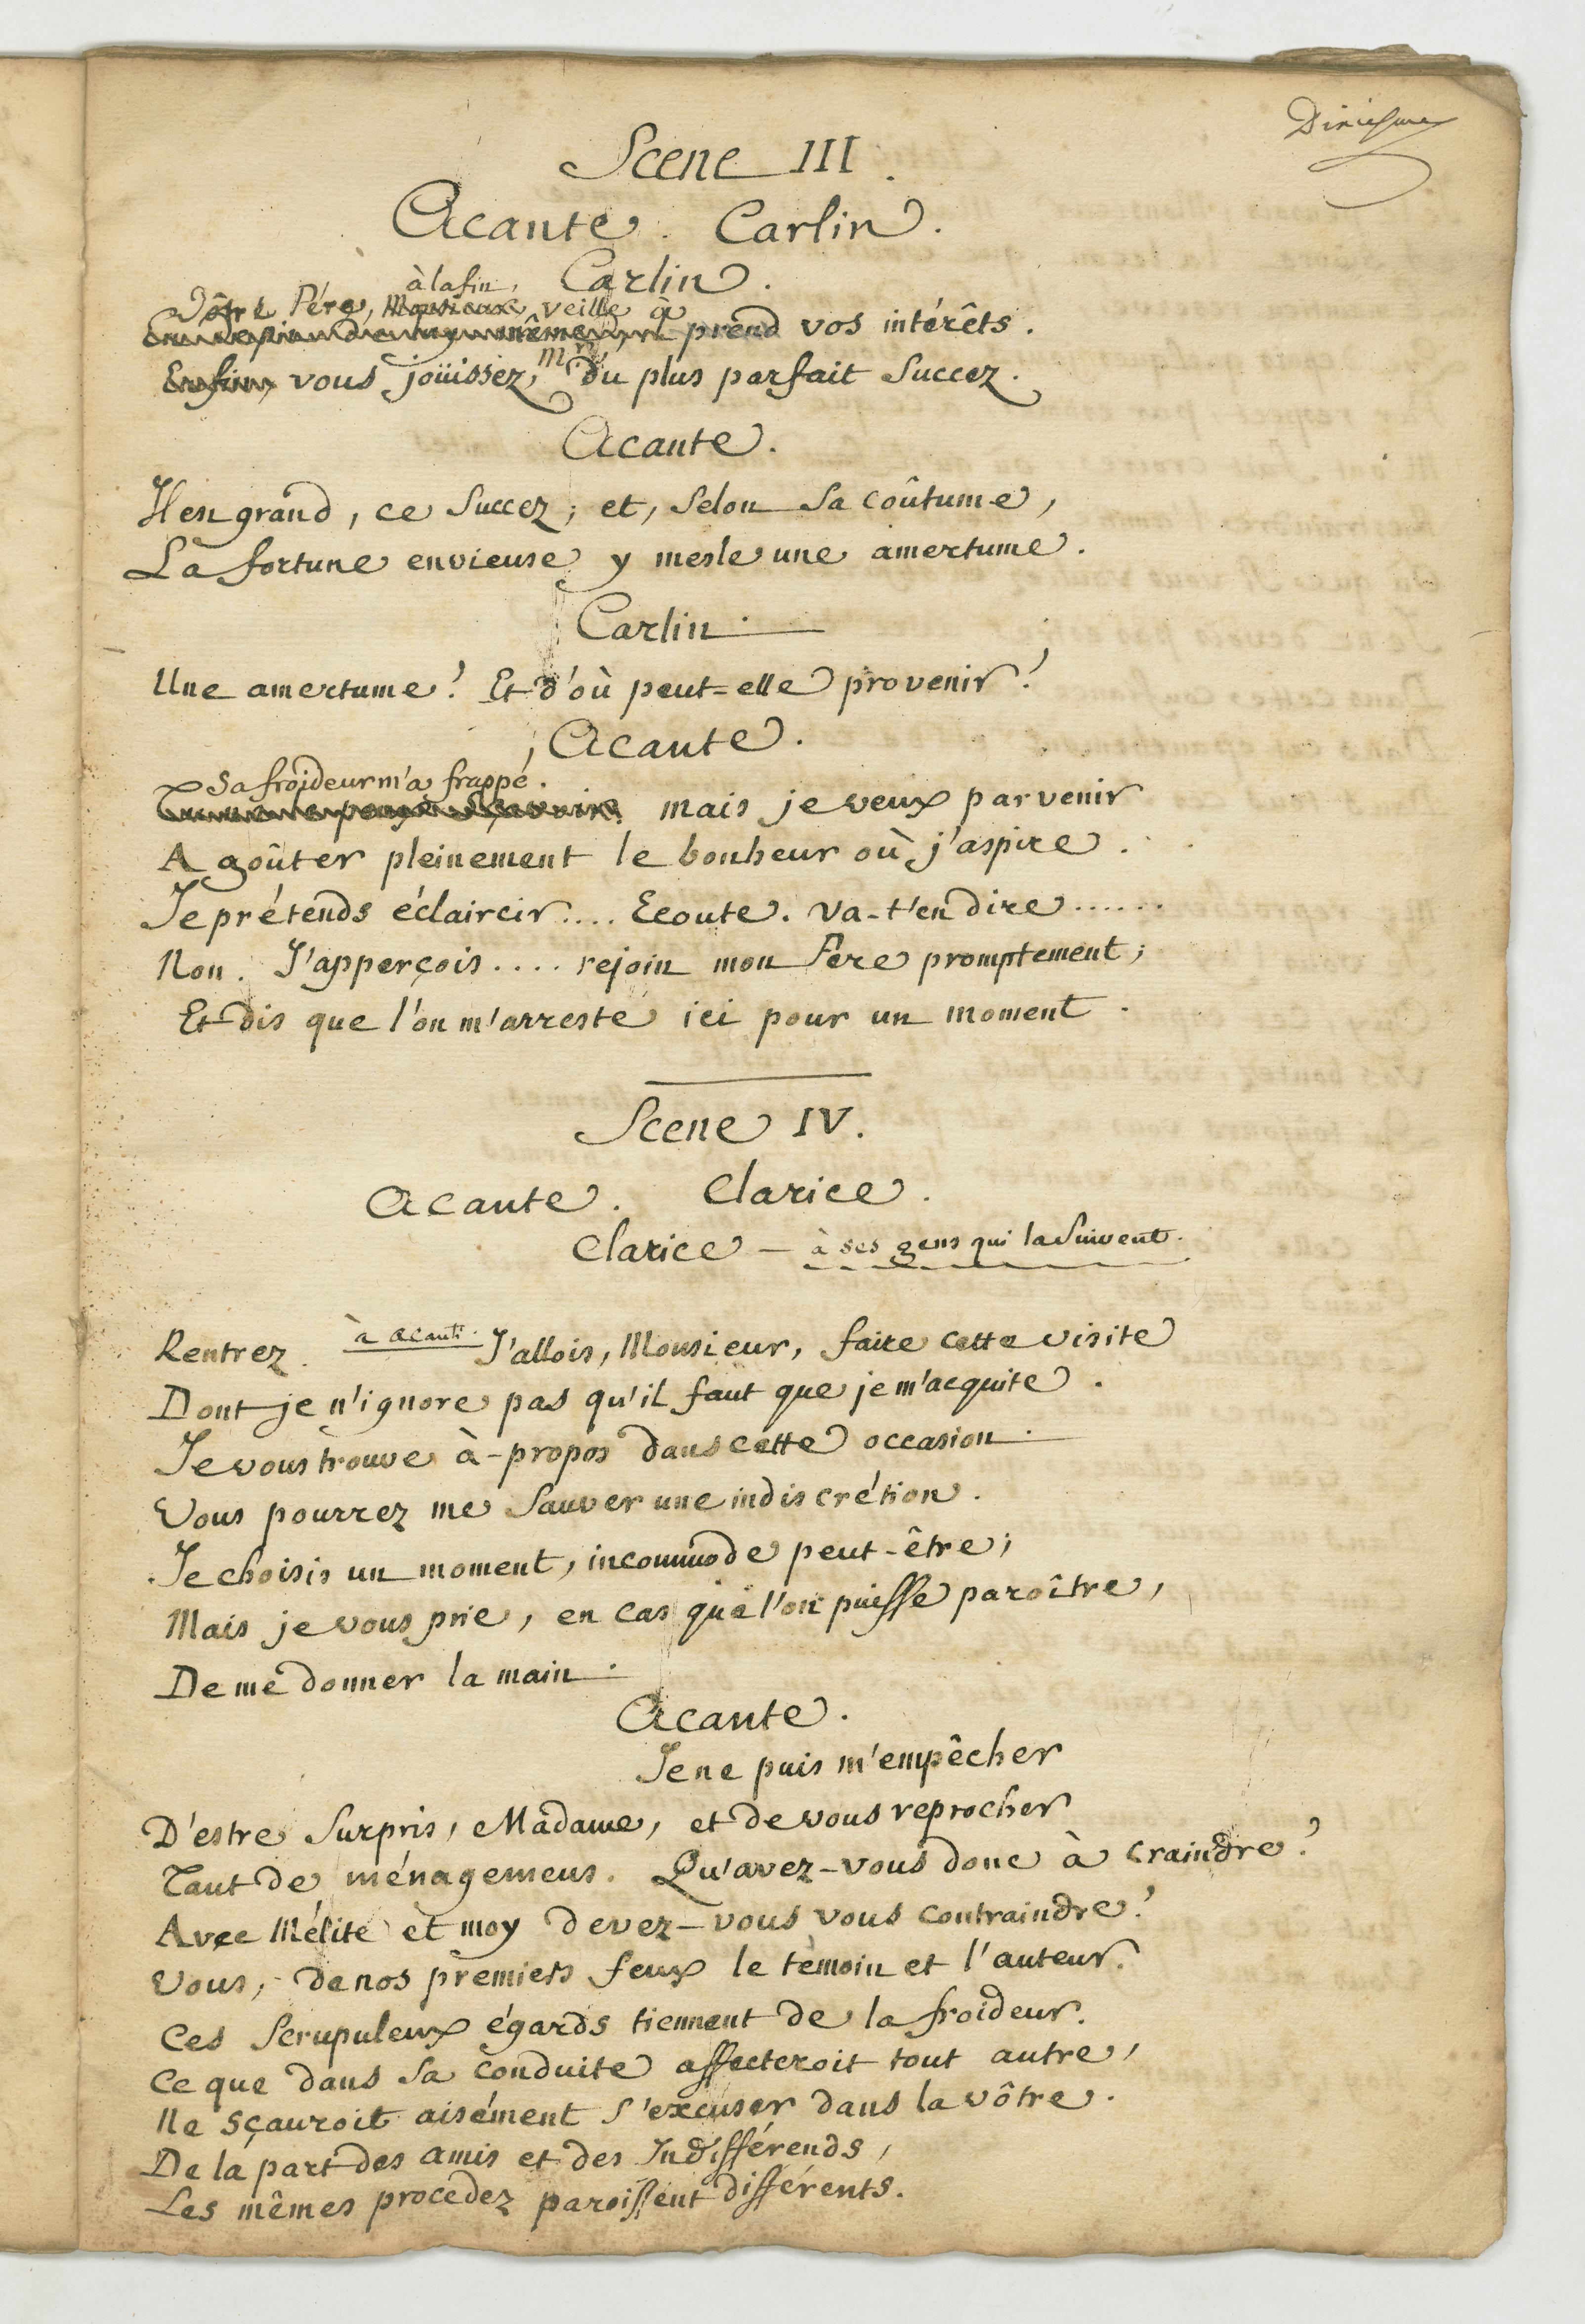 Scene III.
Acante. Carlin.
Carlin.
à la fin,
Vôtre Pére, Monsieur, veille à
prend vos intérêts.
Enfin, vous joüissez, Mr. du plus parfait Succez.
Acante.
Il est grand, ce Succez; et, Selon Sa coûtume,
La fortune envieuse y mesle une amertume.
Carlin.
Une amertume! Et d'où peut=elle provenir?
Acante.
Sa froideur m'a frappé.
mais je veux parvenir
A goûter pleinement le bonheur où j'aspire.
Je prétends éclaircir.... Ecoute. Va-t'en dire......
Non. J'apperçois.... rejoin mon Pere promptement;
Et dis que l'on m'arreste ici pour un moment.
Scene IV.
Acante. Clarice.
Clarice – à ses gens qui la Suivent.
Rentrez. à Acante. J'allois, Monsieur, faire cette visite
Dont je n'ignore pas qu'il faut que je m'acquite.
Je vous trouve à-propos dans cette occasion.
Vous pourrez me Sauver une indiscrétion.
Je choisis un moment, incommode peut-être;
Mais je vous prie, en cas que l'on puisse paroître,
De me donner la main.
Acante.
Je ne puis m'empêcher
D'estre Surpris, Madame, et de vous reprocher
Tant de ménagemens. Qu'avez-vous donc à craindre?
Avec Mélite et moy devez-vous vous contraindre?
Vous, de nos premiers feux le temoin et l'auteur.
Ces Scrupuleux égards tiennent de la froideur.
Ce que dans Sa conduite affecteroit tout autre,
Ne sçauroit aisément S'excuser dans la vôtre.
De la part des amis et des Indifférends,
Les mêmes procedez paroissent différents.